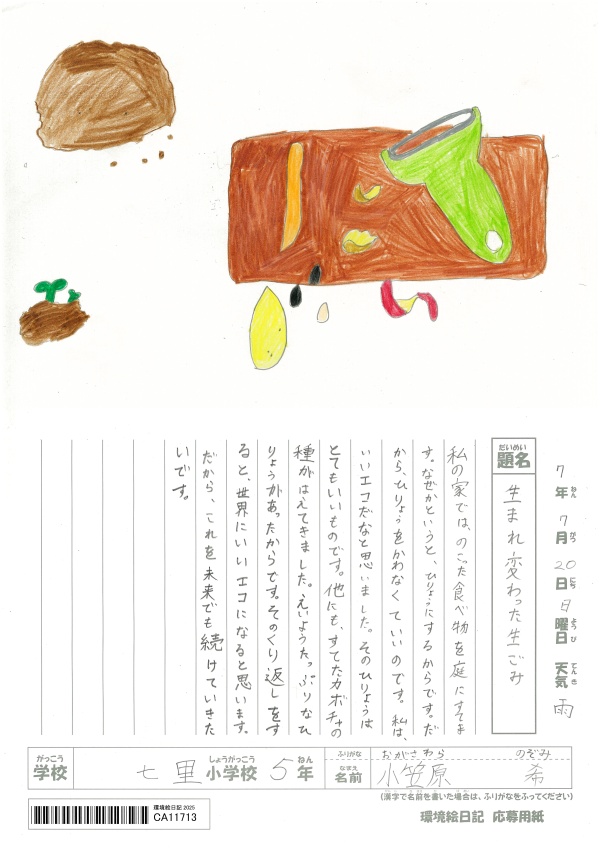 7年ねん 7月がつ 20日にち 日曜日ようび 天気てんき 雨
題名だいめい 生まれ変わった生ごみ
私の家では、のこった食べ物を庭にすてま
す。なぜかというと、ひりょうにするからです。だ
から、ひりょうをかわなくていいのです。私は、
いいエコだなと思いました。そのひりょうは
とてもいいものです。他にも、すてたカボチャの
種がはえてきました。えいようたっぷりなひ
りょうがあったからです。そのくり返しをす
ると、世界にいいエコになると思います。
だから、これを未来でも続けていきた
いです。
がっこう しょうがっこう ねん ふりがな おがさわら のぞみ
学校 七里小学校 5年 なまえ 名前 小笠原 希
(漢字で名前を書いた場合は、ふりがなをふってください)
環境絵日記 2025
CA11713
環境絵日記 応募用紙